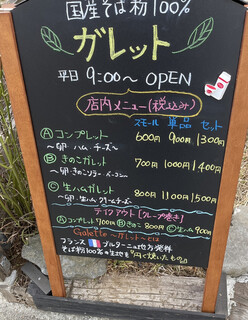 国産そば粉100%
ガレット
平日 9:00〜 OPEN
店内メニュー(税込み)
スモール 単品 セット
Ⓐ コンプレット 600円 900円 1300円
〜卵・ハム・チーズ〜
Ⓑ きのこガレット 700円 1000円 1400円
〜卵・きのこソテー・ベーコン〜
Ⓒ 生ハムガレット 800円 1100円 1500円
〜卵・生ハム・クリームチーズ〜
テイクアウト(クレープ巻き)
Ⓐ コンプレ 700円 Ⓑ きのこ 800円 Ⓒ 生ハム 900円
Galette 〜ガレット〜とは
フランス ブルターニュ地方発祥
そば粉100%の生地を 薄く焼いたもの